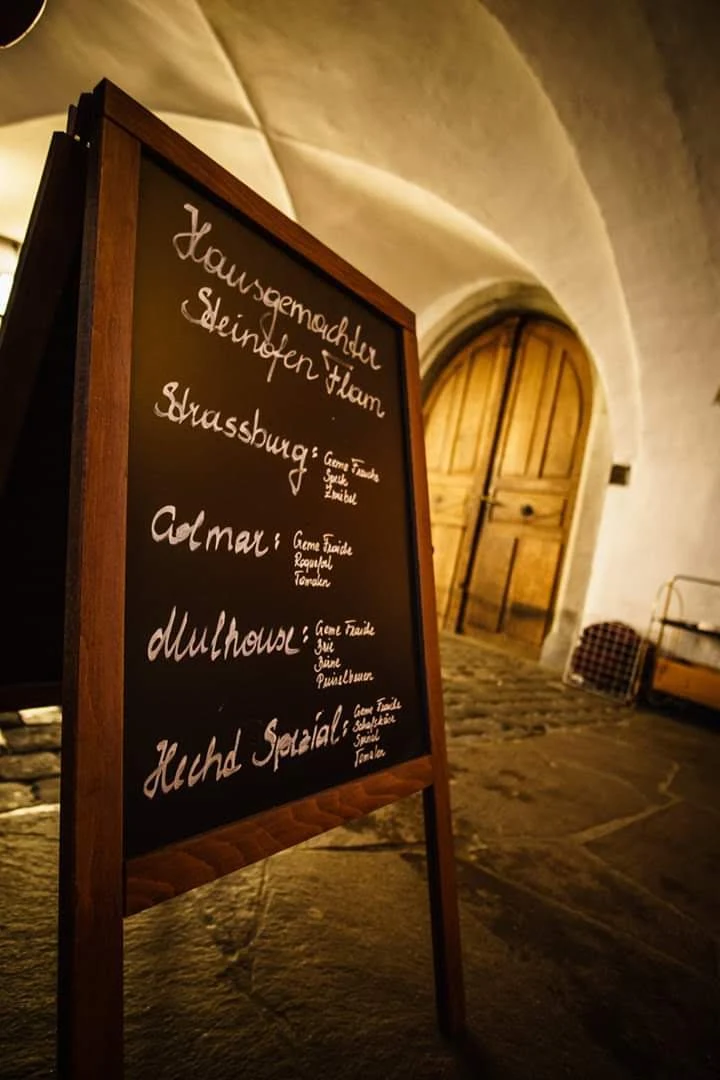 Hausgemachter
Steinofen Flam
Strassburg: Creme Fraiche
Speck
Zwiebel
Colmar: Creme Fraiche
Roquefort
Tomaten
Mulhouse: Creme Fraiche
Brie
Birne
Preiselbeeren
Hecht Spezial: Creme Fraiche
Schafskäse
Spinat
Tomaten